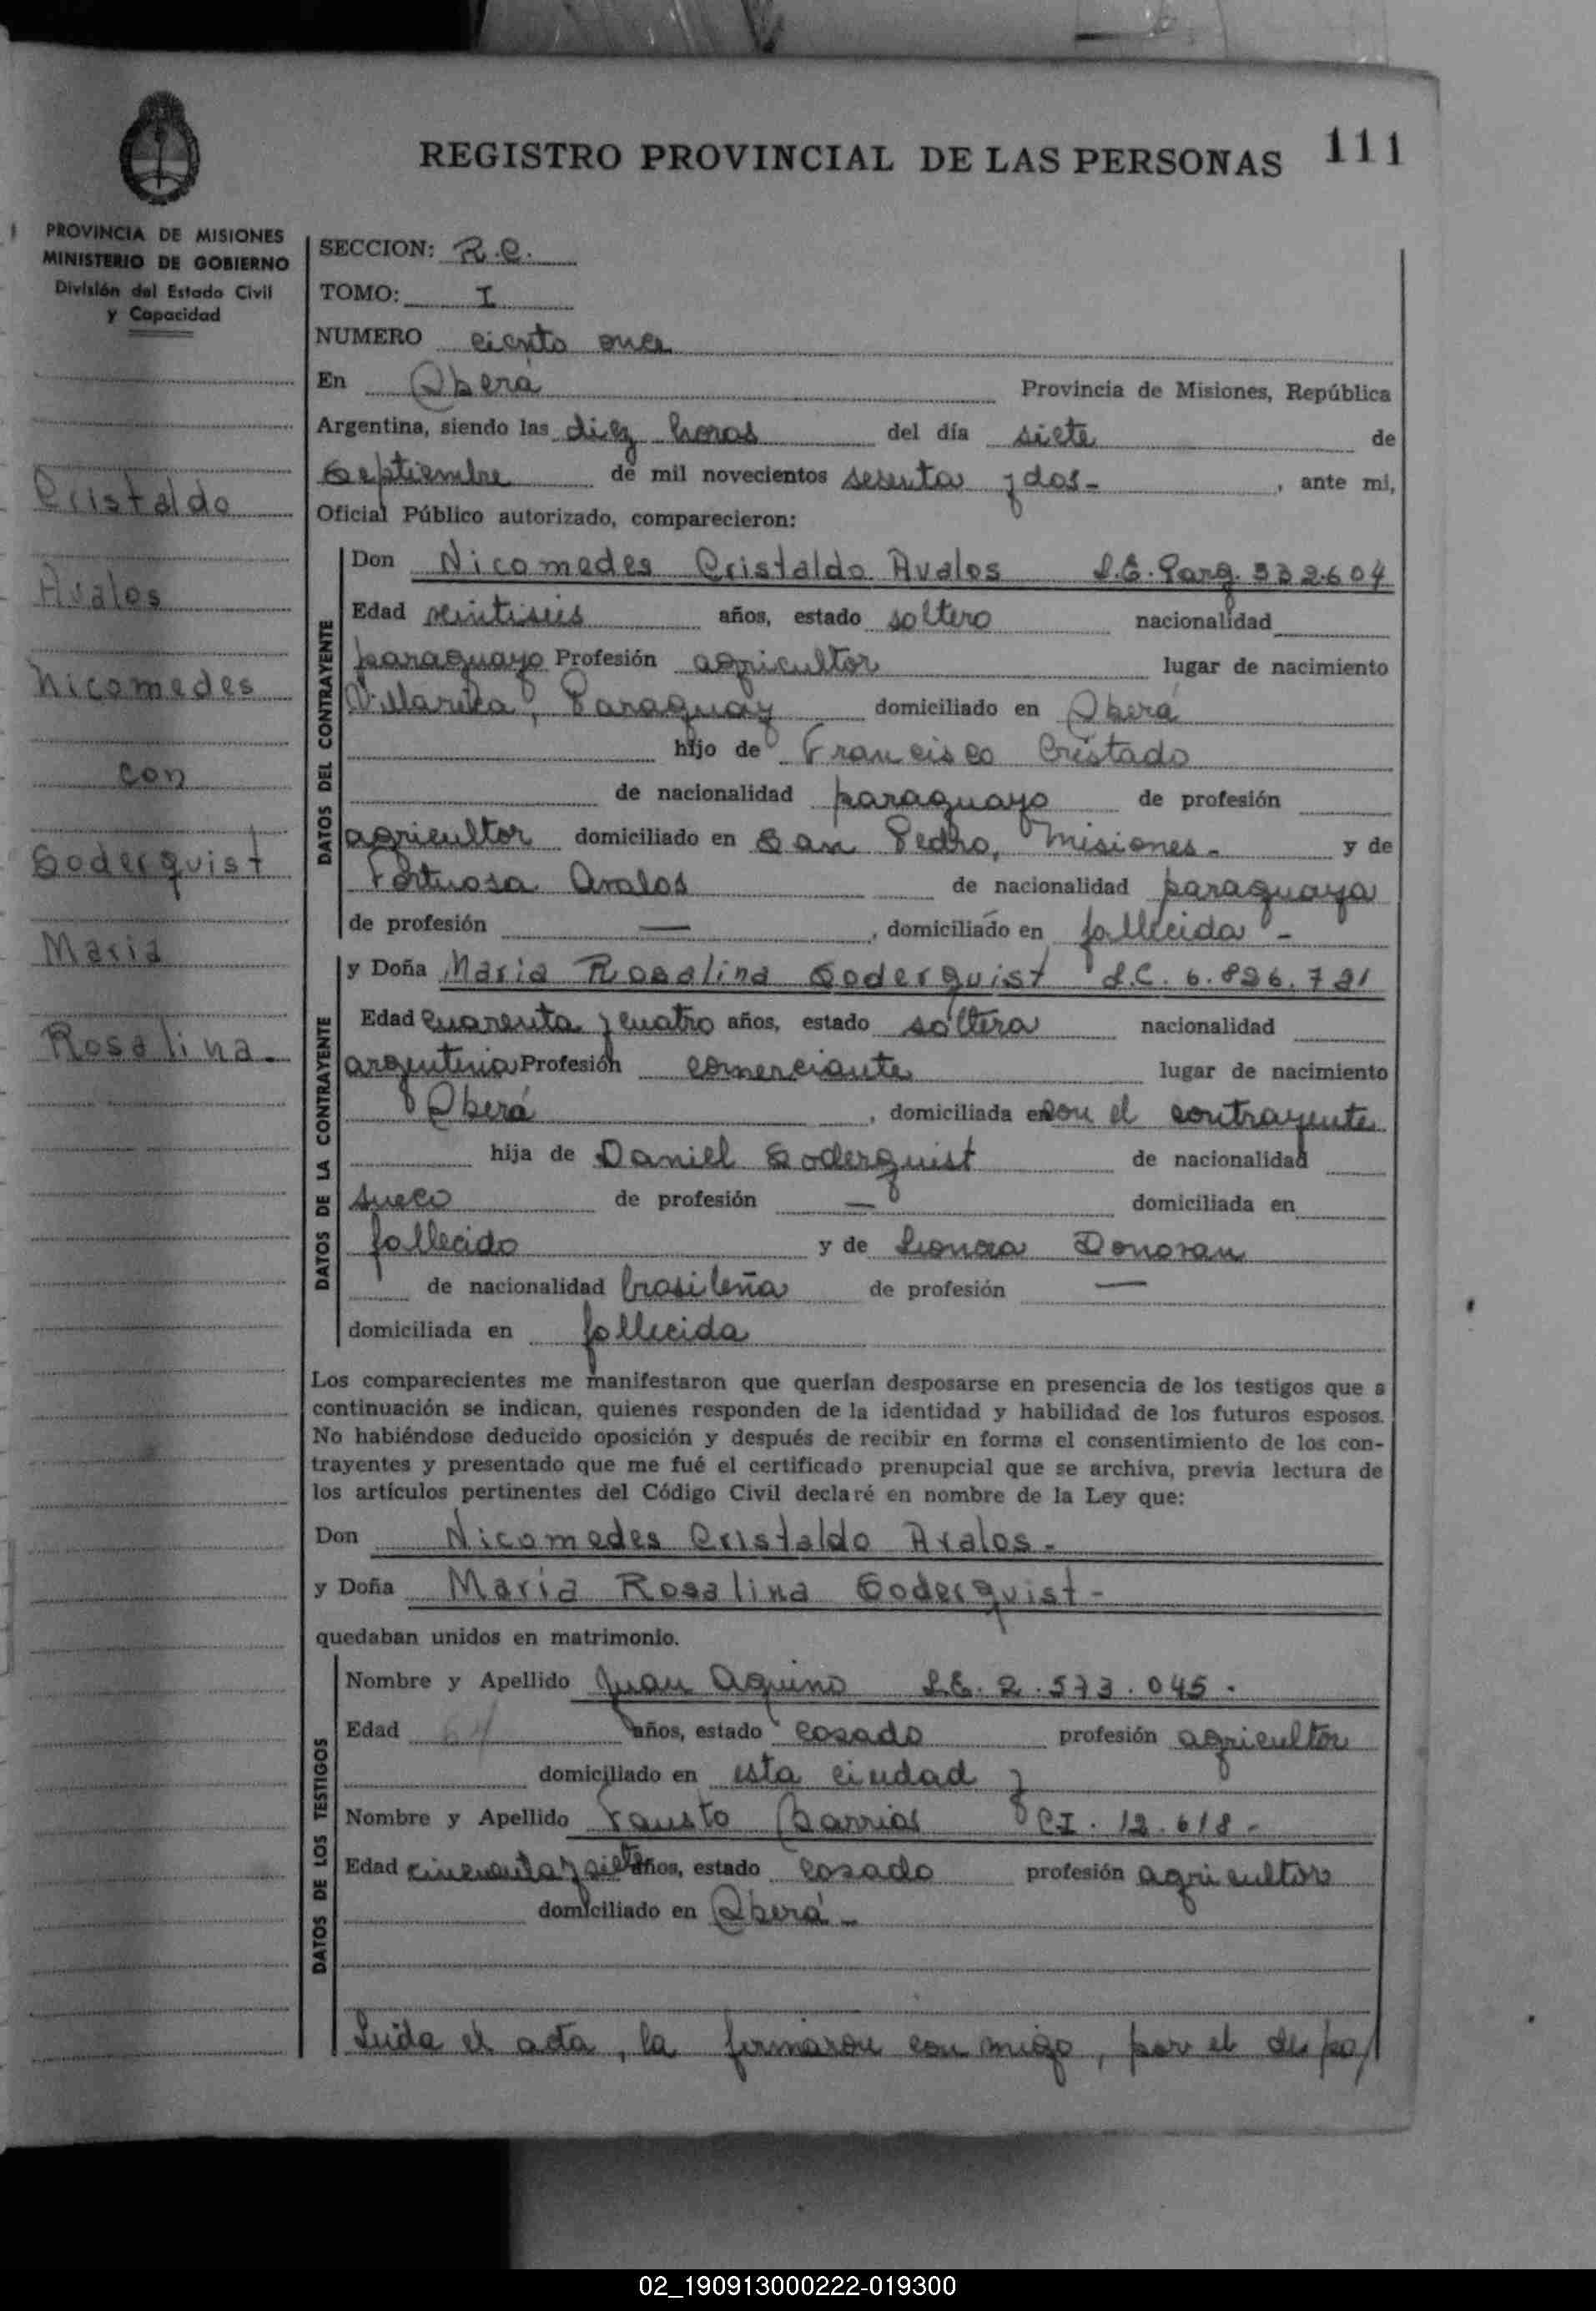 REGISTRO PROVINCIAL DE LAS PERSONAS 111
PROVINCIA DE MISIONES
MINISTERIO DE GOBIERNO
División del Estado Civil
y Capacidad
Cristaldo
Avalos
Nicomedes
con
Soderquist
Maria
Rosalina.
SECCION: R.C.
TOMO: I
NUMERO ciento once
En Oberá Provincia de Misiones, República
Argentina, siendo las diez horas del día siete de
Septiembre de mil novecientos sesenta y dos- , ante mi,
Oficial Público autorizado, comparecieron:
DATOS DEL CONTRAYENTE
Don Nicomedes Cristaldo Avalos L.E. Parg. 332.604
Edad veintiseis años, estado soltero nacionalidad
paraguayo Profesión agricultor lugar de nacimiento
Villarica, Paraguay domiciliado en Oberá
hijo de Francisco Cristado
de nacionalidad paraguayo de profesión
agricultor domiciliado en San Pedro, Misiones- y de
Fortuosa Avalos de nacionalidad paraguaya
de profesión — , domiciliado en fallecida -
DATOS DE LA CONTRAYENTE
y Doña Maria Rosalina Soderquist L.C. 6.826.721
Edad cuarenta y cuatro años, estado soltera nacionalidad
argentina Profesión comerciante lugar de nacimiento
Oberá , domiciliada en con el contrayente
hija de Daniel Soderquist de nacionalidad
sueco de profesión — domiciliada en
fallecido y de Leonora Donovan
de nacionalidad brasileña de profesión —
domiciliada en fallecida
Los comparecientes me manifestaron que querían desposarse en presencia de los testigos que a
continuación se indican, quienes responden de la identidad y habilidad de los futuros esposos.
No habiéndose deducido oposición y después de recibir en forma el consentimiento de los con-
trayentes y presentado que me fué el certificado prenupcial que se archiva, previa lectura de
los artículos pertinentes del Código Civil declaré en nombre de la Ley que:
Don Nicomedes Cristaldo Avalos.-
y Doña Maria Rosalina Soderquist-
quedaban unidos en matrimonio.
DATOS DE LOS TESTIGOS
Nombre y Apellido Juan Aquino L.E. 2.573.045.
Edad 64 años, estado casado profesión agricultor
domiciliado en esta ciudad y
Nombre y Apellido Fausto Barrios CI. 12.618-
Edad cincuenta y siete años, estado casado profesión agricultor
domiciliado en Oberá-
Leida el acta, la firmaron con migo, por el
02_190913000222-019300